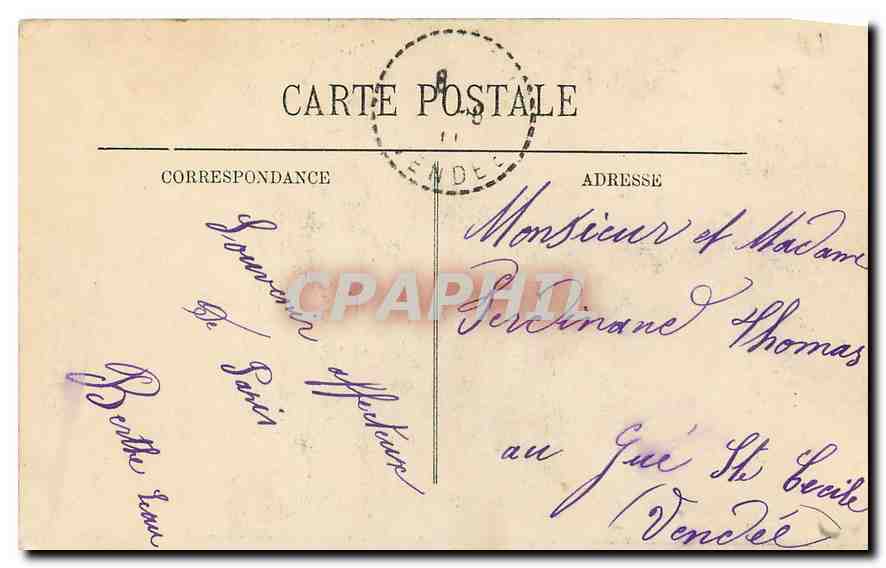 CARTE POSTALE
8
-8
11
VENDÉE
CORRESPONDANCE
ADRESSE
Souvenir affectueux
de Paris
Berthe
Monsieur et Madame
Ferdinand Thomas
au Gué Ste Cecile
(Vendée)
CPAPHIL